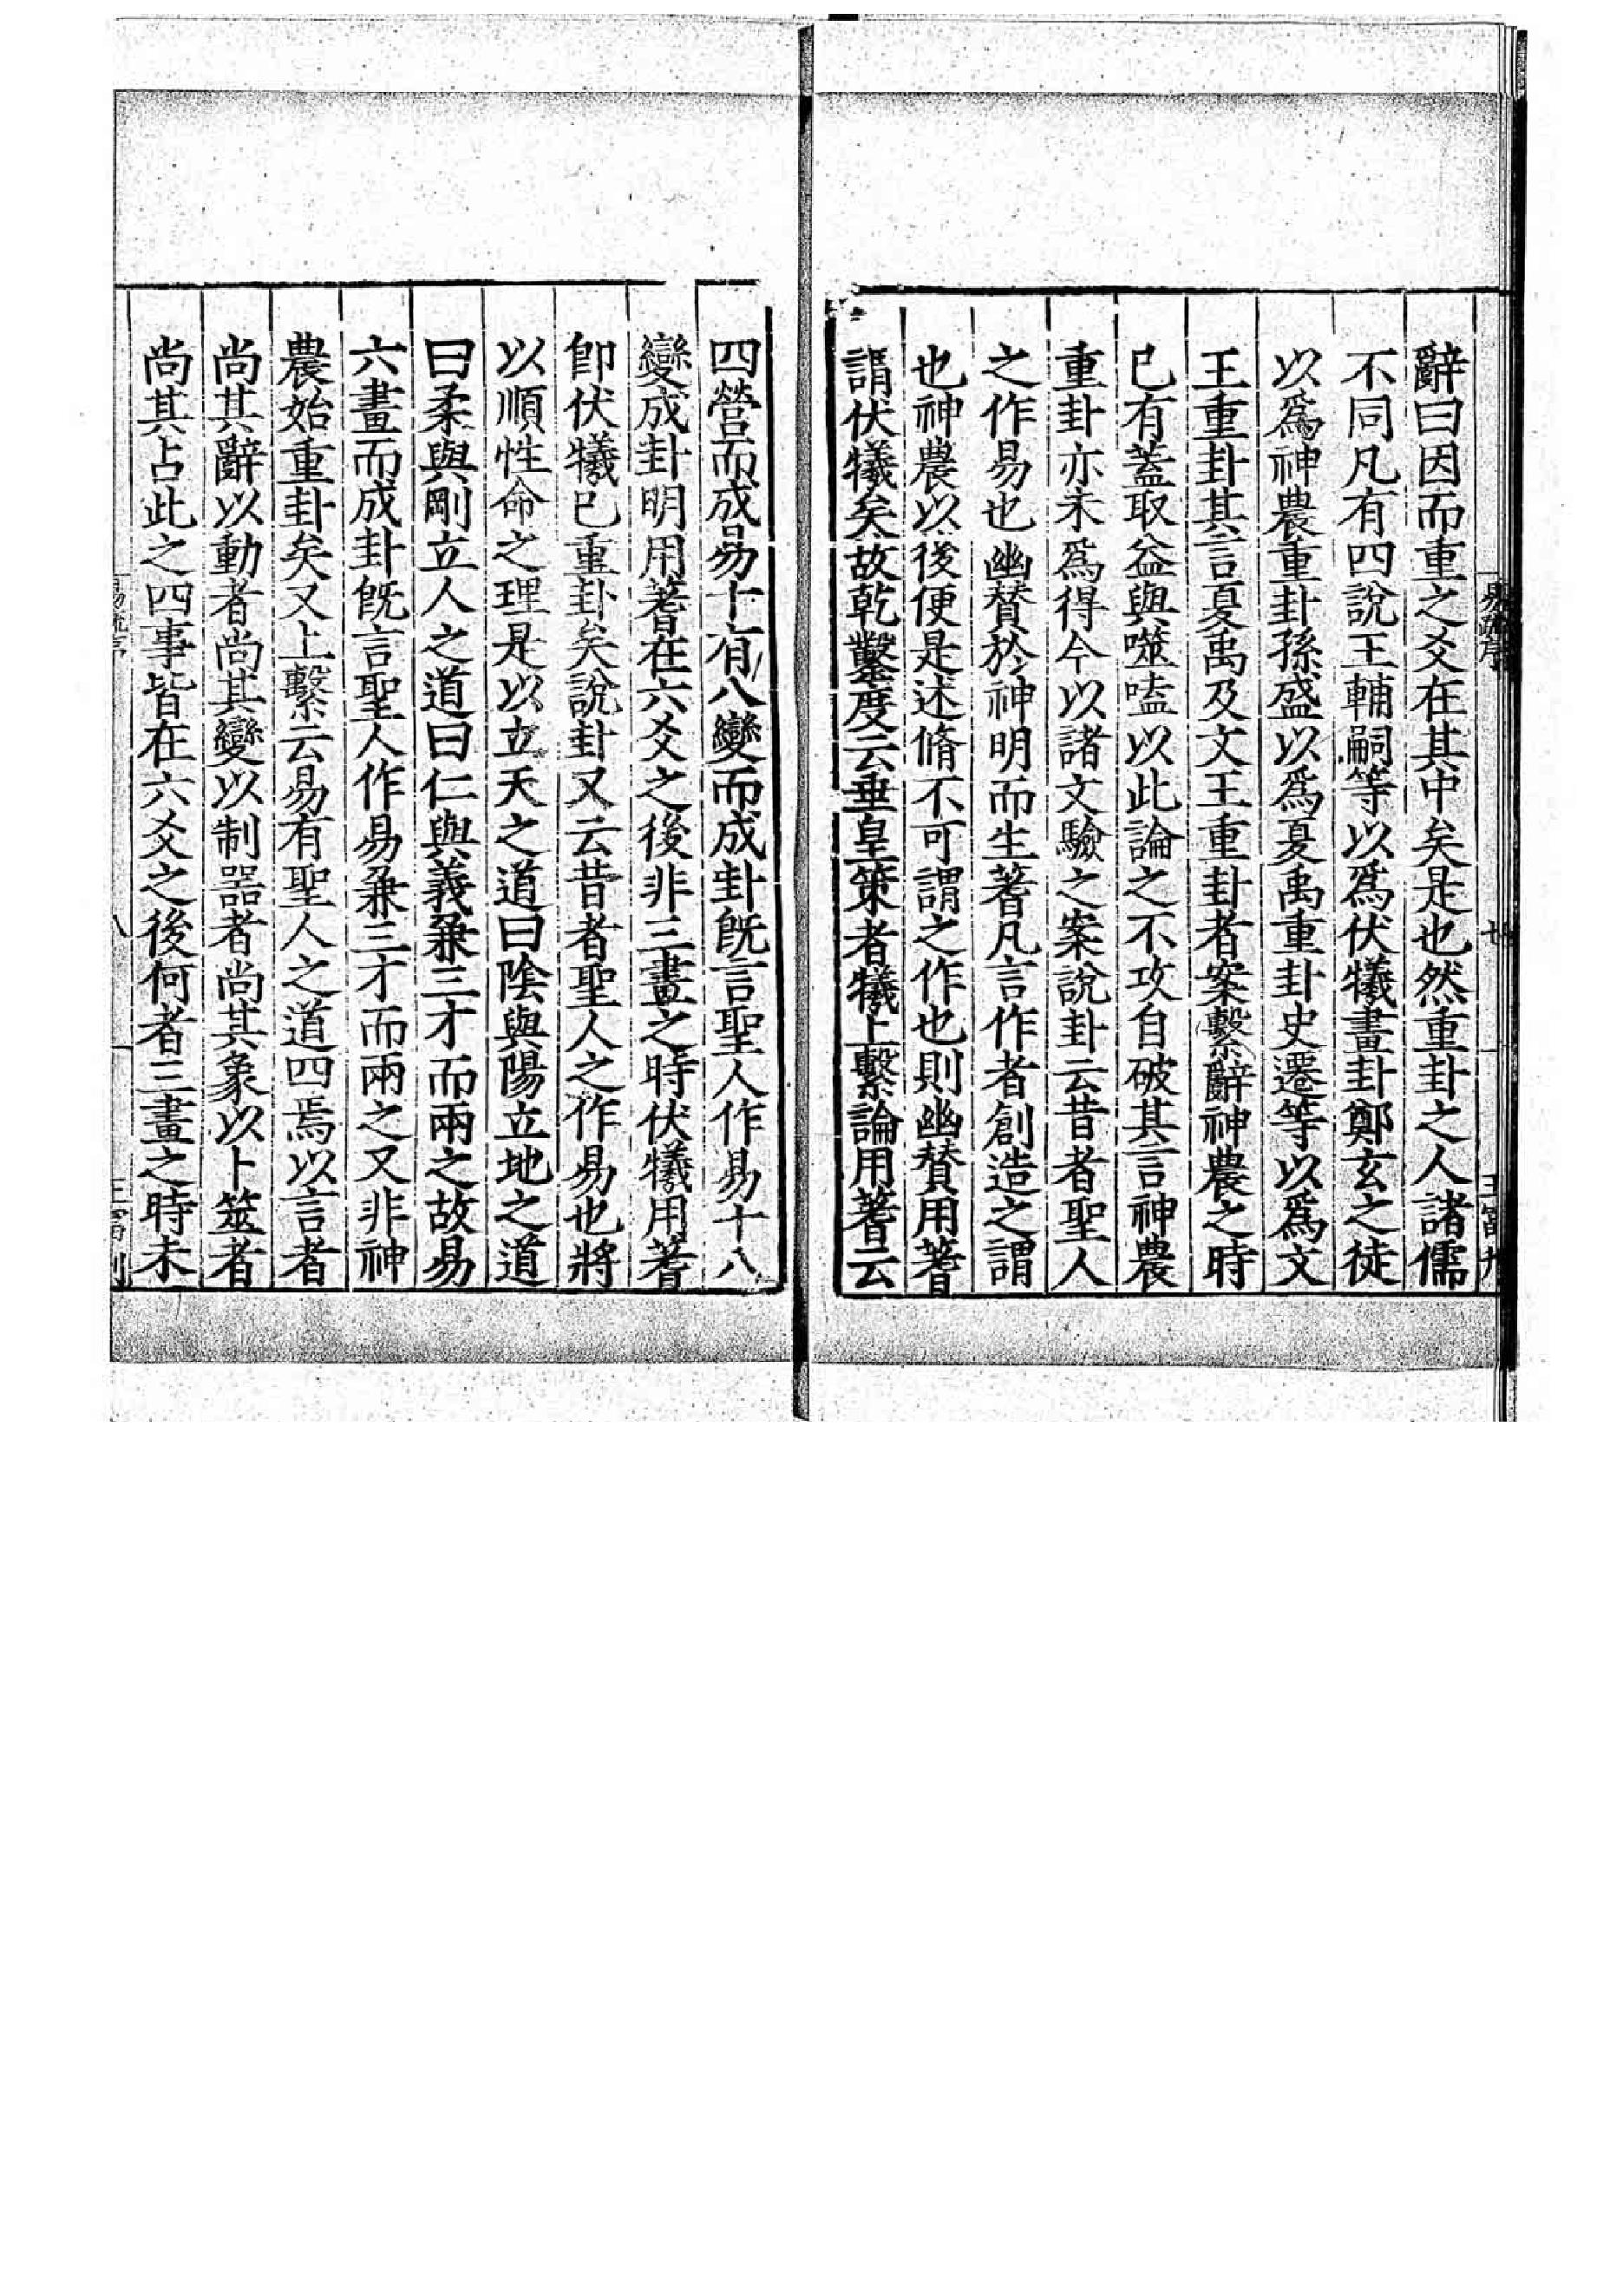 辭曰因而重之爻在其中矣是也然重卦之人諸儒
不同凡有四說王輔嗣等以爲伏犧畫卦鄭玄之徒
以爲神農重卦孫盛以爲夏禹重卦史遷等以爲文
王重卦其言夏禹及文王重卦者案繫辭神農之時
已有蓋取益與噬嗑以此論之不攻自破其言神農
重卦亦未爲得今以諸文驗之案說卦云昔者聖人
之作易也幽贊於神明而生蓍凡言作者創造之謂
也神農以後便是述脩不可謂之作也則幽贊用蓍
謂伏犧矣故乾鑿度云垂皇策者犧上繫論用蓍云
四營而成易十有八變而成卦旣言聖人作易十八
變成卦明用蓍在六爻之後非三畫之時伏犧用蓍
卽伏犧已重卦矣說卦又云昔者聖人之作易也將
以順性命之理是以立天之道曰陰與陽立地之道
曰柔與剛立人之道曰仁與義兼三才而兩之故易
六畫而成卦旣言聖人作易兼三才而兩之又非神
農始重卦矣又上繫云易有聖人之道四焉以言者
尚其辭以動者尚其變以制器者尚其象以卜筮者
尚其占此之四事皆在六爻之後何者三畫之時未